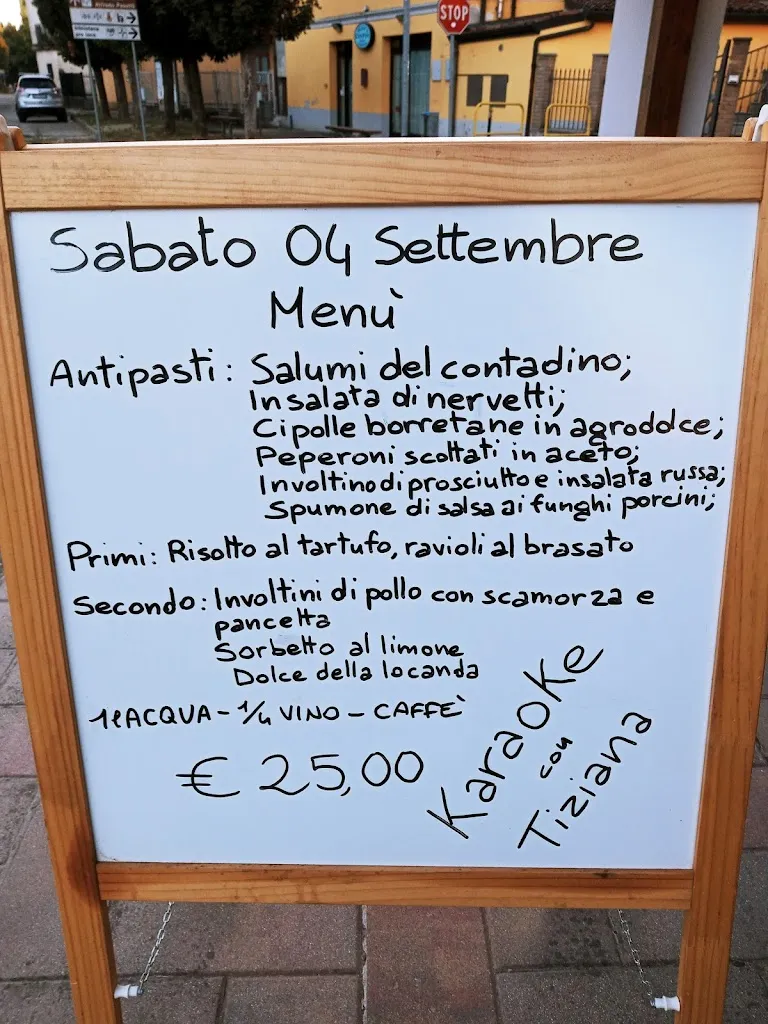 Alfredo Pasotti
STOP
Sabato 04 Settembre
Menù
Antipasti: Salumi del contadino;
Insalata di nervetti;
Cipolle borretane in agrodolce;
Peperoni scottati in aceto;
Involtino di prosciutto e insalata russa;
Spumone di salsa ai funghi porcini;
Primi: Risotto al tartufo, ravioli al brasato
Secondo: Involtini di pollo con scamorza e
pancetta
Sorbetto al limone
Dolce della locanda
1lACQUA - 1/4 VINO - CAFFÈ
€ 25,00
Karaoke
con
Tiziana